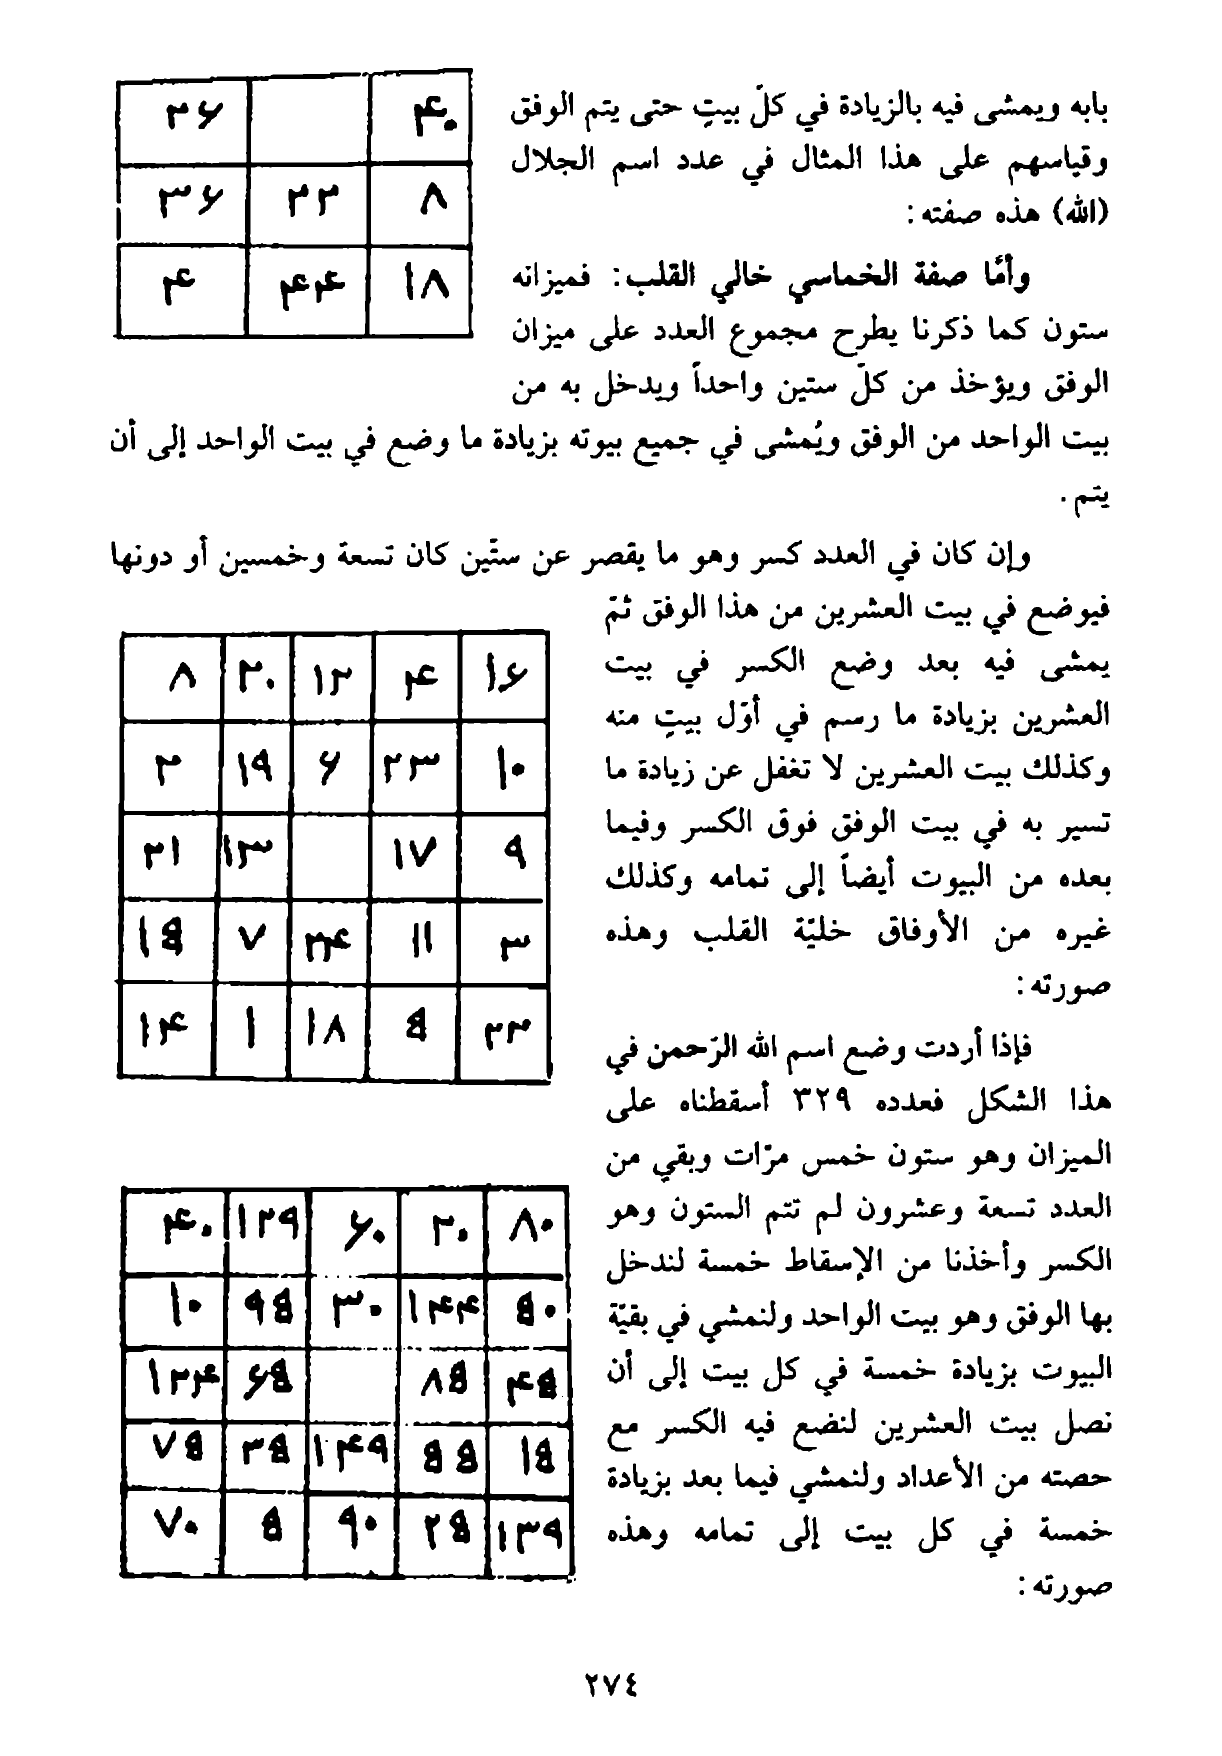 بابه ويمشى فيه بالزيادة في كلّ بيتٍ حتى يتم الوفق
وقياسهم على هذا المثال في عدد اسم الجلال
(الله) هذه صفته:
۲۶ ۴۰
۳۶ ۲۲ ۸
۴ ۴۴ ۱۸
وأمّا صفة الخماسي خالي القلب: فميزانه
ستون كما ذكرنا يطرح مجموع العدد على ميزان
الوفق ويؤخذ من كلّ ستين واحداً ويدخل به من
بيت الواحد من الوفق ويُمشى في جميع بيوته بزيادة ما وضع في بيت الواحد إلى أن
يتم.
وإن كان في العدد كسر وهو ما يقصر عن ستّين كان تسعة وخمسين أو دونها
فيوضع في بيت العشرين من هذا الوفق ثمّ
يمشى فيه بعد وضع الكسر في بيت
العشرين بزيادة ما رسم في أوّل بيتٍ منه
وكذلك بيت العشرين لا تغفل عن زيادة ما
تسير به في بيت الوفق فوق الكسر وفيما
بعده من البيوت أيضاً إلى تمامه وكذلك
غيره من الأوفاق خليّة القلب وهذه
صورته:
۸ ۲۰ ۱۲ ۴ ۱۶
۲ ۱۹ ۶ ۲۳ ۱۰
۲۱ ۱۳ ۱۷ ۹
۱۵ ۷ ۲۴ ۱۱ ۳
۱۴ ۱ ۱۸ ۵ ۲۲
فإذا أردت وضع اسم الله الرّحمن في
هذا الشكل فعدده ٣٢٩ أسقطناه على
الميزان وهو ستون خمس مرّات وبقي من
العدد تسعة وعشرون لم تتم الستون وهو
الكسر وأخذنا من الإسقاط خمسة لندخل
بها الوفق وهو بيت الواحد ولنمشي في بقيّة
البيوت بزيادة خمسة في كل بيت إلى أن
نصل بيت العشرين لنضع فيه الكسر مع
حصته من الأعداد ولنمشي فيما بعد بزيادة
خمسة في كل بيت إلى تمامه وهذه
صورته:
۴۰ ۱۲۹ ۶۰ ۲۰ ۸۰
۱۰ ۹۵ ۳۰ ۱۴۴ ۵۰
۱۳۴ ۶۵ ۸۵ ۴۵
۷۵ ۳۵ ۱۴۹ ۵۵ ۱۵
۷۰ ۵ ۹۰ ۲۵ ۱۳۹
٢٧٤